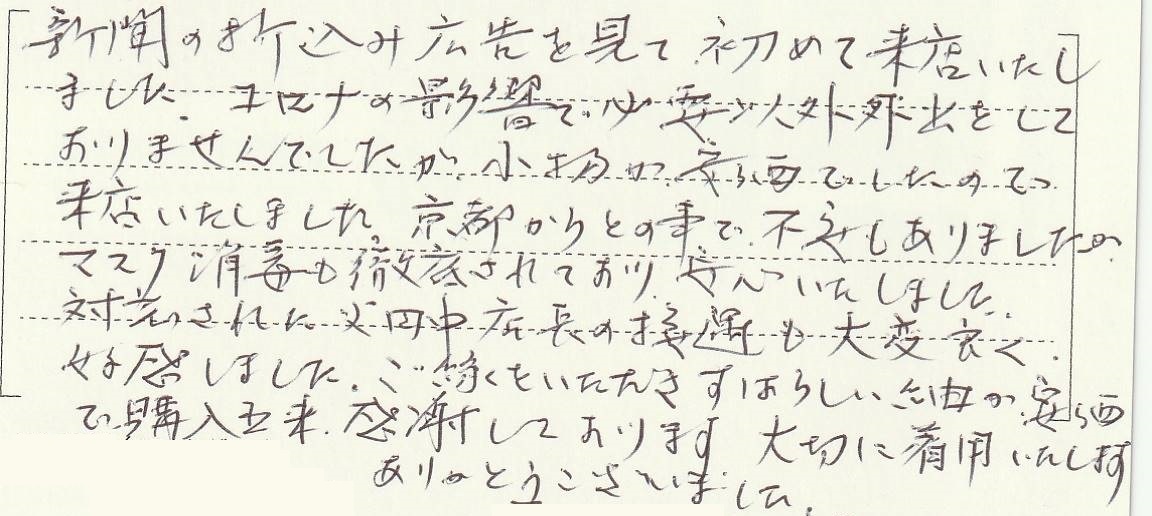 新聞の折込み広告を見て初めて来店いたし
ました。コロナの影響で必要以外外出をして
おりませんでしたが、小物が安価でしたので
来店いたしました。京都からとの事で不安もありましたが
マスク消毒も徹底されており安心いたしました。
対応された 田中店長の接遇も大変良く、
好感しました。ご縁をいただきすばらしい紬が安価
で購入出来、感謝しております 大切に着用いたします
ありがとうございました。